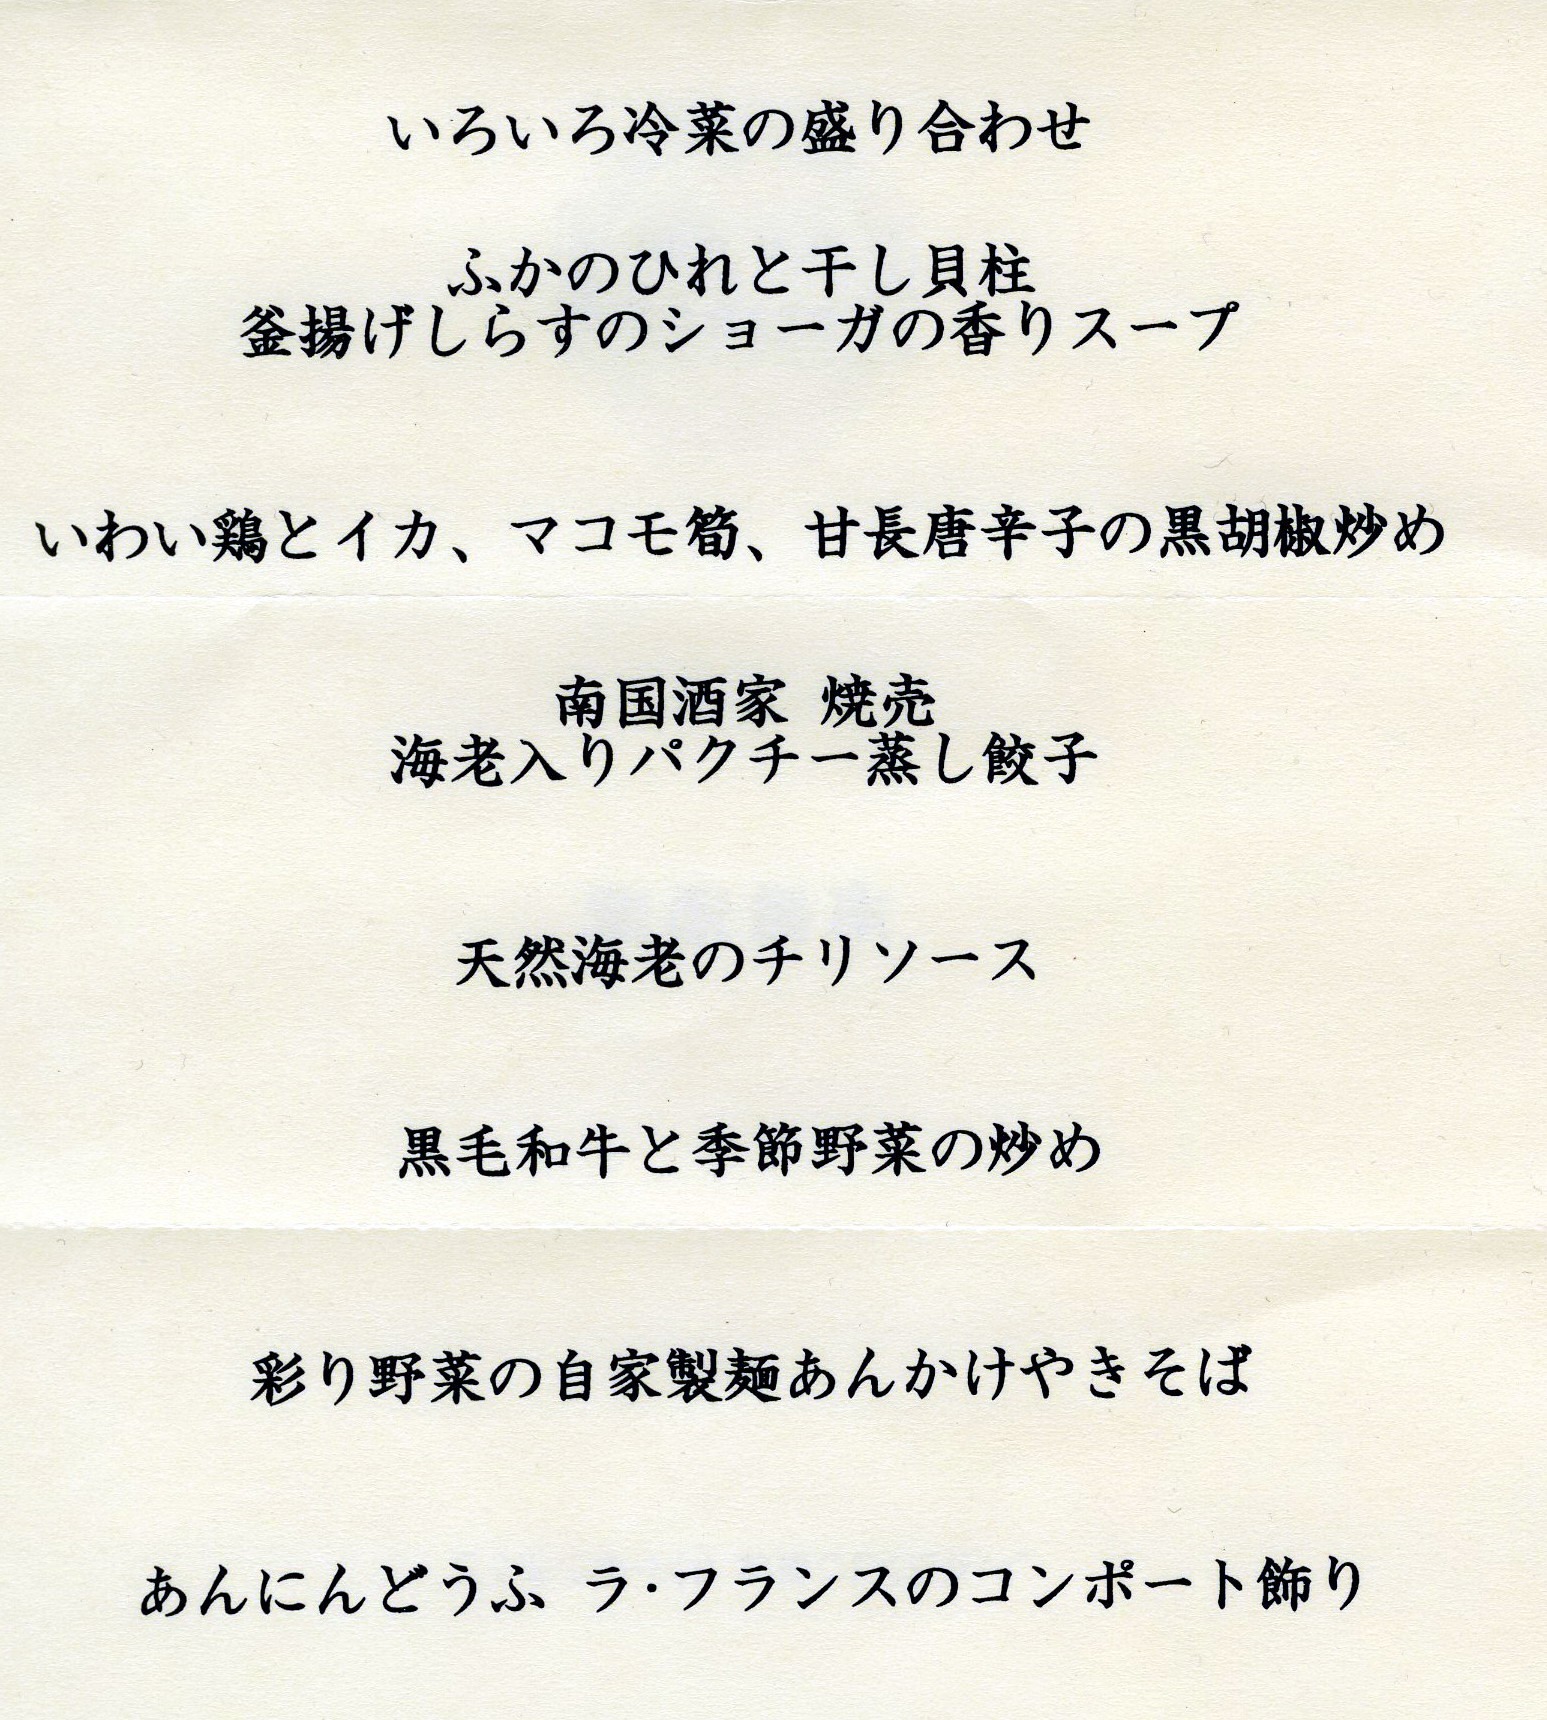 いろいろ冷菜の盛り合わせ
ふかのひれと干し貝柱
釜揚げしらすのショーガの香りスープ
いわい鶏とイカ、マコモ筍、甘長唐辛子の黒胡椒炒め
南国酒家 焼売
海老入りパクチー蒸し餃子
天然海老のチリソース
黒毛和牛と季節野菜の炒め
彩り野菜の自家製麺あんかけやきそば
あんにんどうふ ラ・フランスのコンポート飾り